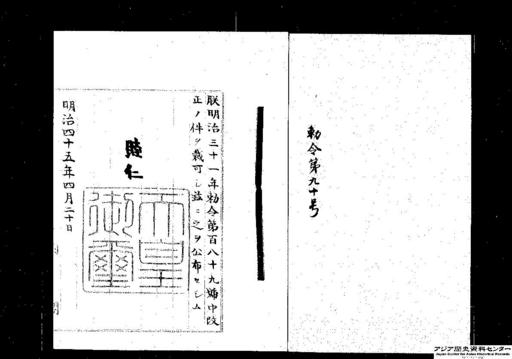 勅令第九十号
朕明治三十一年勅令第百八十九號中改
正ノ件ヲ裁可シ茲ニ之ヲ公布セシム
睦仁
天皇
御璽
明治四十五年四月二十日
アジア歴史資料センター
Japan Center for Asian Historical Records